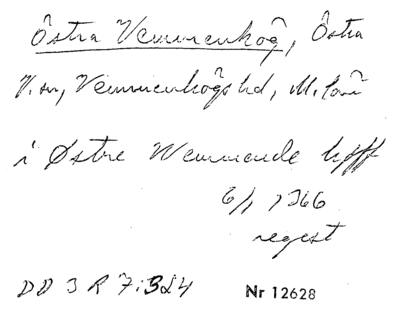 Östra Vemmenhög, Östra
V. sn, Vemmenhögs hd, M. län
i Østre Wemmende hyff
6/1 1366
regest
DD 3 R 7: 324
Nr 12628